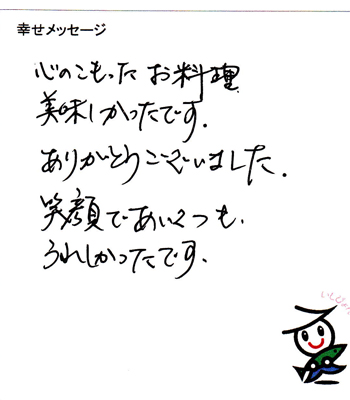 幸せメッセージ
心のこもった お料理
美味しかったです.
ありがとうございました.
笑顔であいさつも.
うれしかったです.